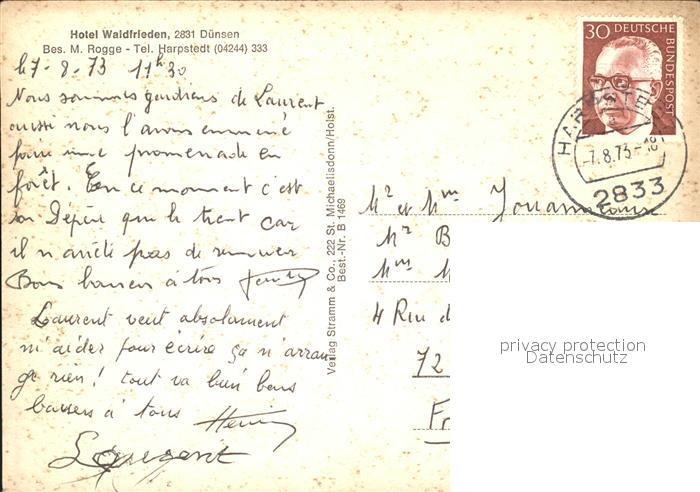 Hotel Waldfrieden, 2831 Dünsen
Bes. M. Rogge - Tel. Harpstedt (04244) 333
le 7-8-73 11h30
Nous sommes gardiens de Laurent
aussi nous l'avons emmené
faire une promenade en
forêt. En ce moment c'est
son Pépère qui le tient car
il n'arrête pas de remuer
Bons baisers à tous
Laurent veut absolument
m'aider pour écrire ça n'arran
ge rien! tout va bien bons
baisers à tous
Laurent
Verlag Stramm & Co., 222 St. Michaelisdonn/Holst.
Best.-Nr. B 1469
30 DEUTSCHE
BUNDESPOST
HARPSTEDT
-7.8.73-18
2833
Mr et Mme
Mr B
Mme M
4 Rue d
72
Fr
privacy protection
Datenschutz